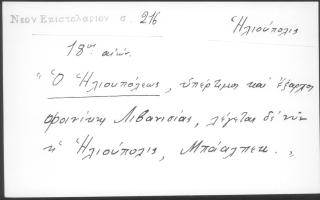 Νεον Επιστολαριον σ. 216
Ἡλιούπολις
18ος αἰών.
"Ὁ Ἡλιουπόλεως, ὑπέρτιμος καὶ ἔξαρχος
Φοινίκης Λιβανησίας, λέγεται δὲ νῦν
ἡ Ἡλιούπολις, Μπάαλπεκ."